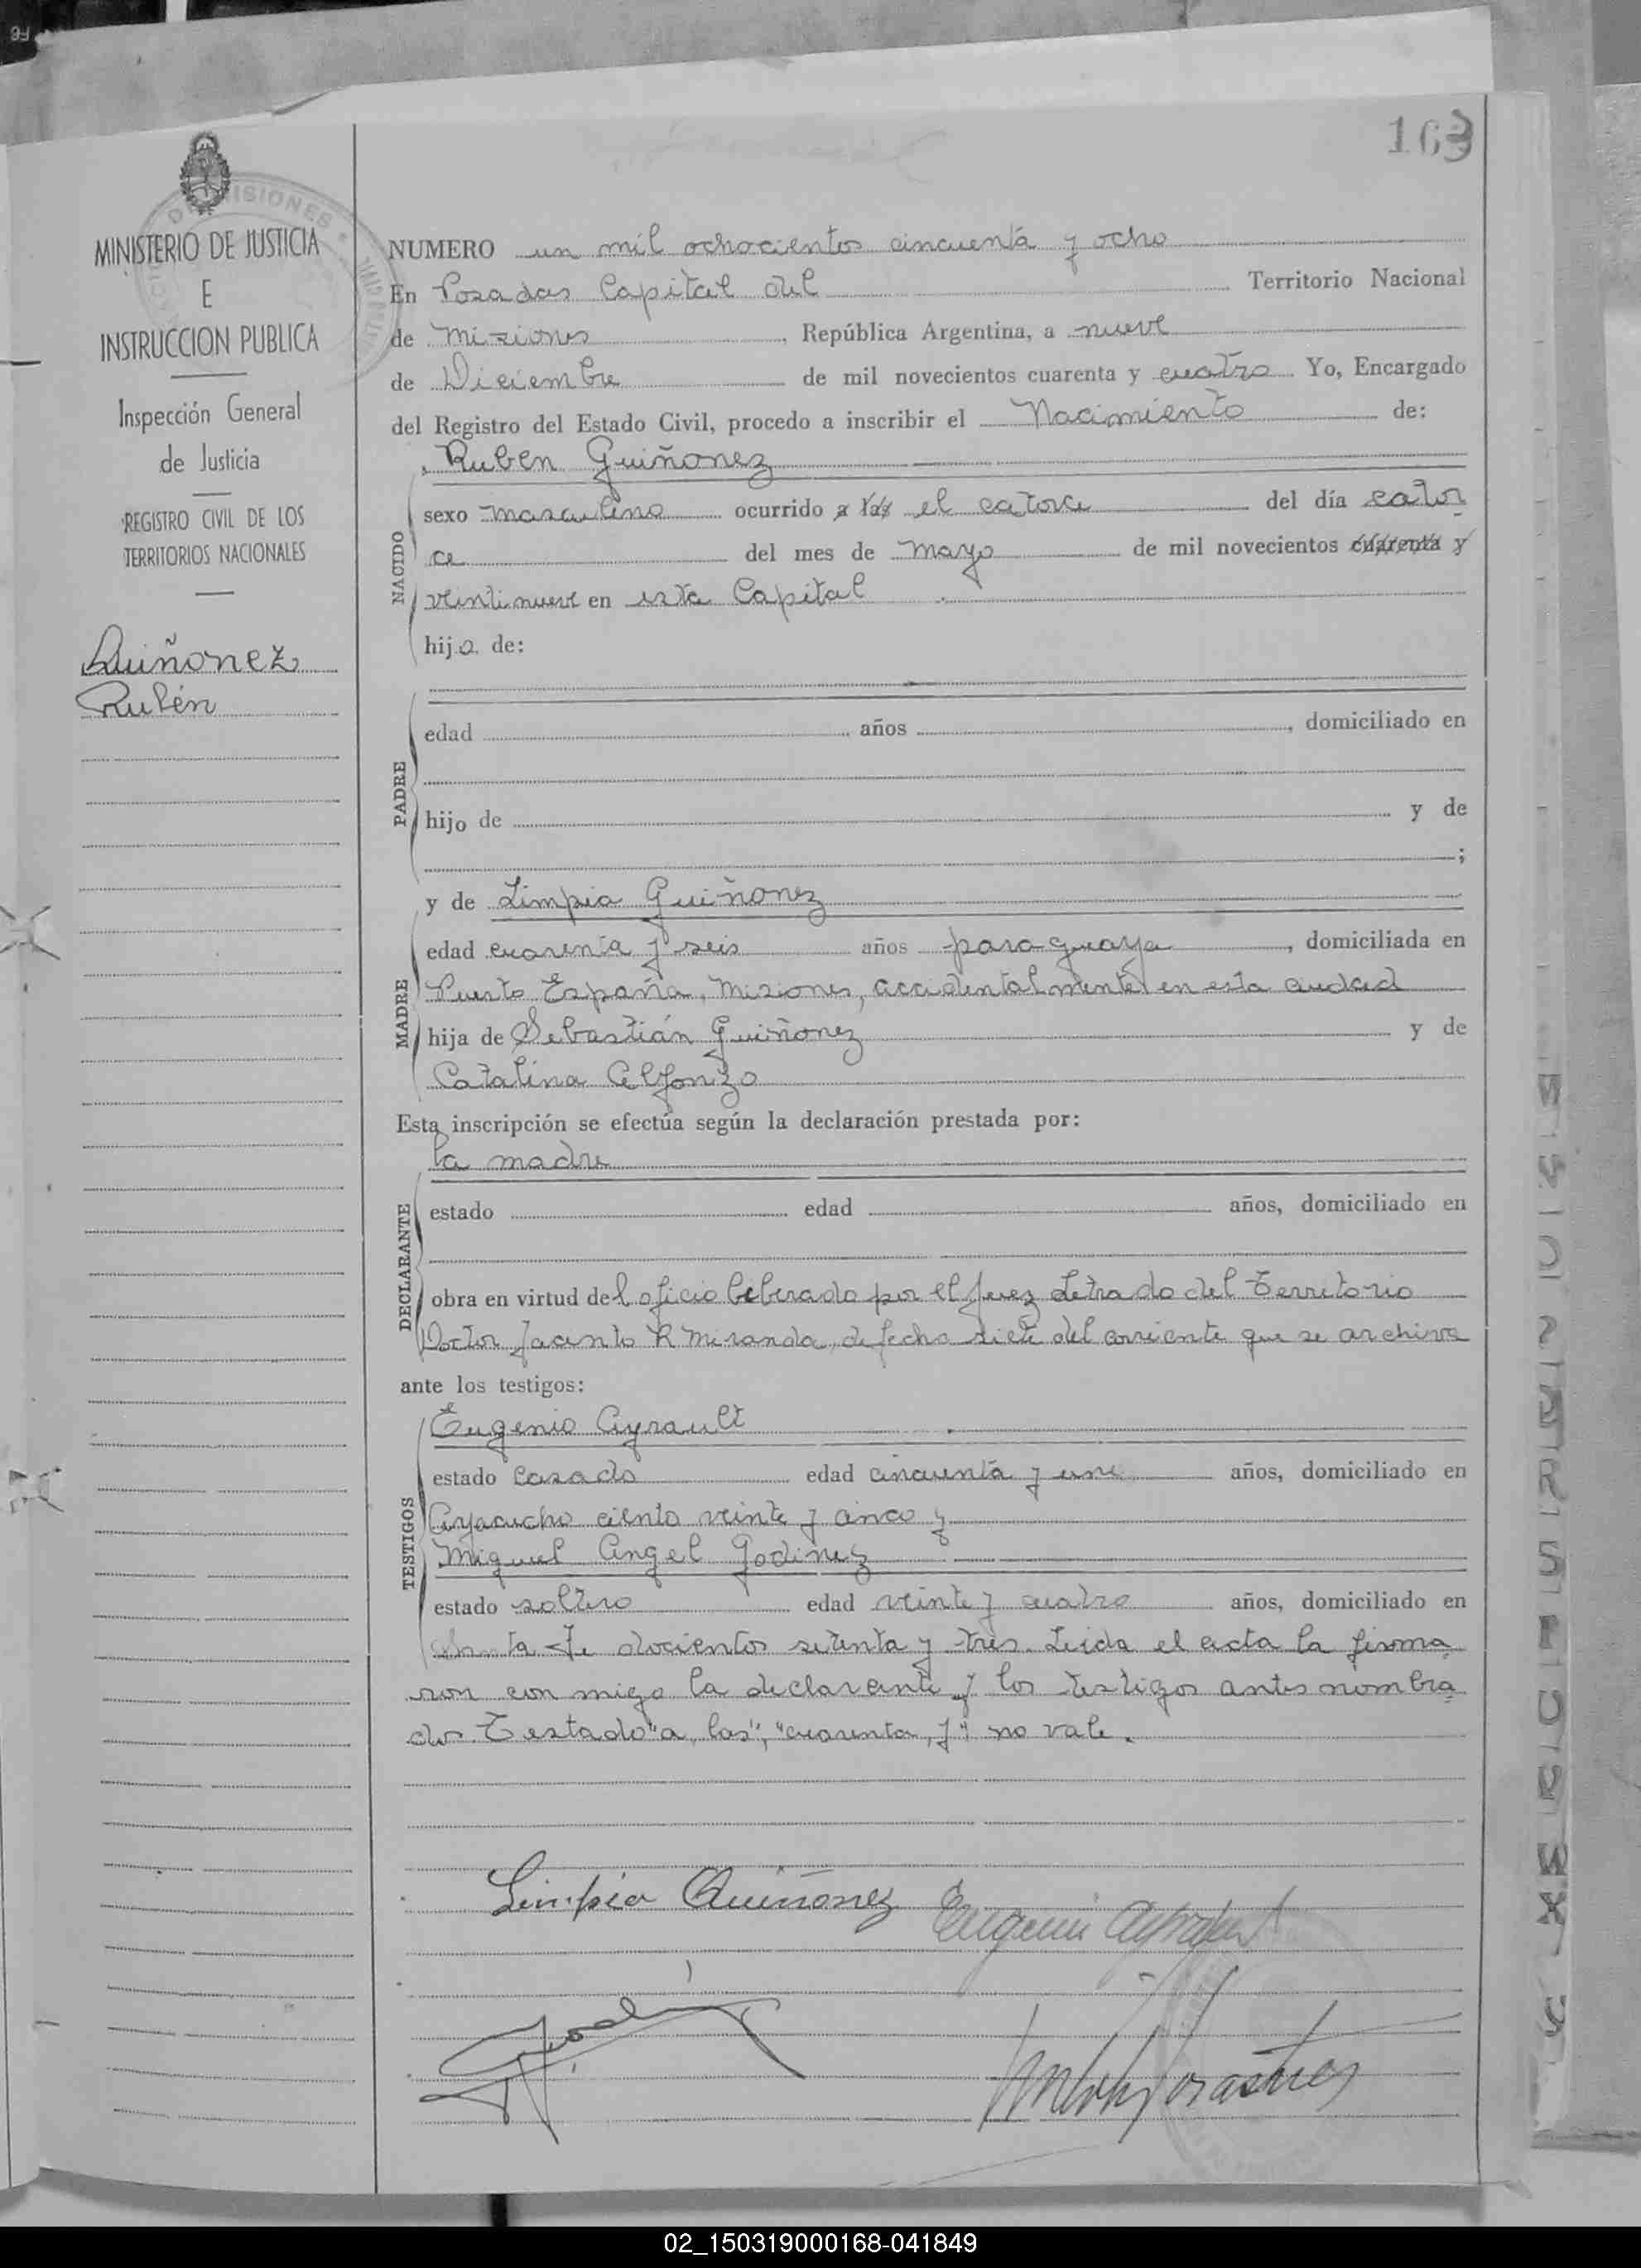 163
MINISTERIO DE JUSTICIA
E
INSTRUCCION PUBLICA
Inspección General
de Justicia
REGISTRO CIVIL DE LOS
TERRITORIOS NACIONALES
Quiñonez
Rubén
NUMERO un mil ochocientos cincuenta y ocho
En Posadas Capital del Territorio Nacional
de Misiones, República Argentina, a nueve
de Diciembre de mil novecientos cuarenta y cuatro Yo, Encargado
del Registro del Estado Civil, procedo a inscribir el Nacimiento de:
Ruben Quiñonez
NACIDO
sexo masculino ocurrido a las el catorce del día cator
ce del mes de mayo de mil novecientos cuarenta y
veintinueve en esta Capital
hijo de:
PADRE
edad años , domiciliado en
hijo de y de
;
y de Limpia Quiñonez
MADRE
edad cuarenta y seis años paraguaya, domiciliada en
Puerto España, Misiones, accidentalmente en esta ciudad
hija de Sebastián Quiñonez y de
Catalina Alfonzo
Esta inscripción se efectúa según la declaración prestada por:
la madre
DECLARANTE
estado edad años, domiciliado en
obra en virtud del oficio liberado por el Juez Letrado del Territorio
Doctor Jacinto R Miranda, de fecha siete del corriente que se archiva
ante los testigos:
Eugenio Ayrault
TESTIGOS
estado casado edad cincuenta y un años, domiciliado en
Ayacucho ciento veinte y cinco y
Miguel Angel Godinez
estado soltero edad veinte y cuatro años, domiciliado en
Santa Fe docientos setenta y tres. Leida el acta la firma
ron con migo la declarante y los testigos antes nombra
dos. Testado "a las", "cuarenta, y": no vale.
Limpia Quiñonez Eugenio Ayrault
02_150319000168-041849